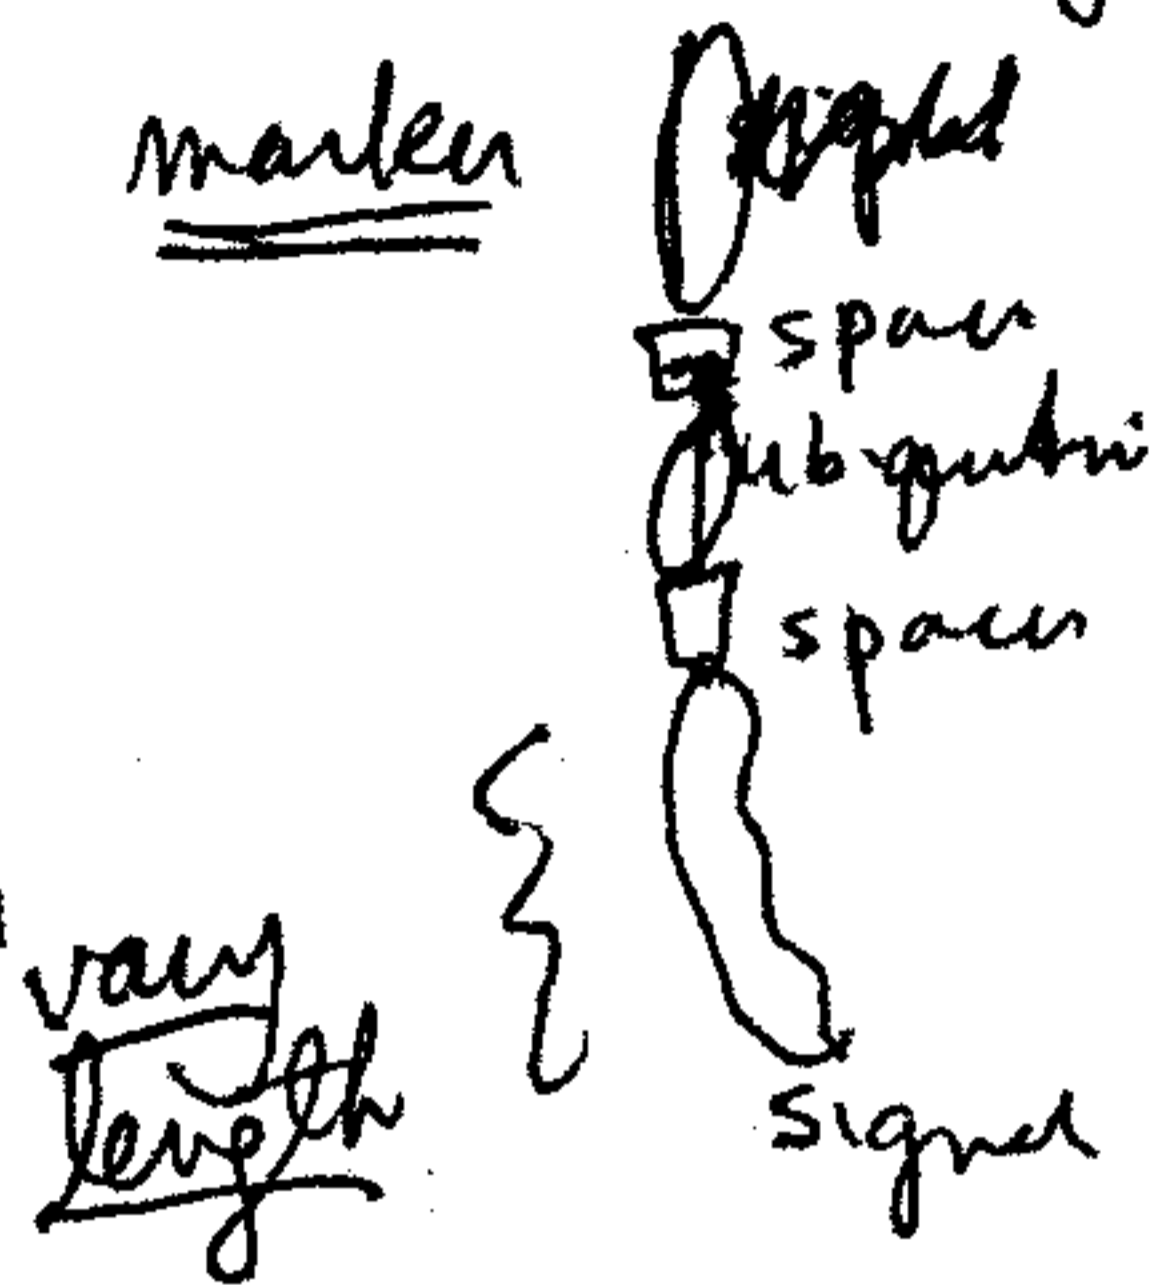 marker
spacer
ubiquitin
spacer
vary
length
signal